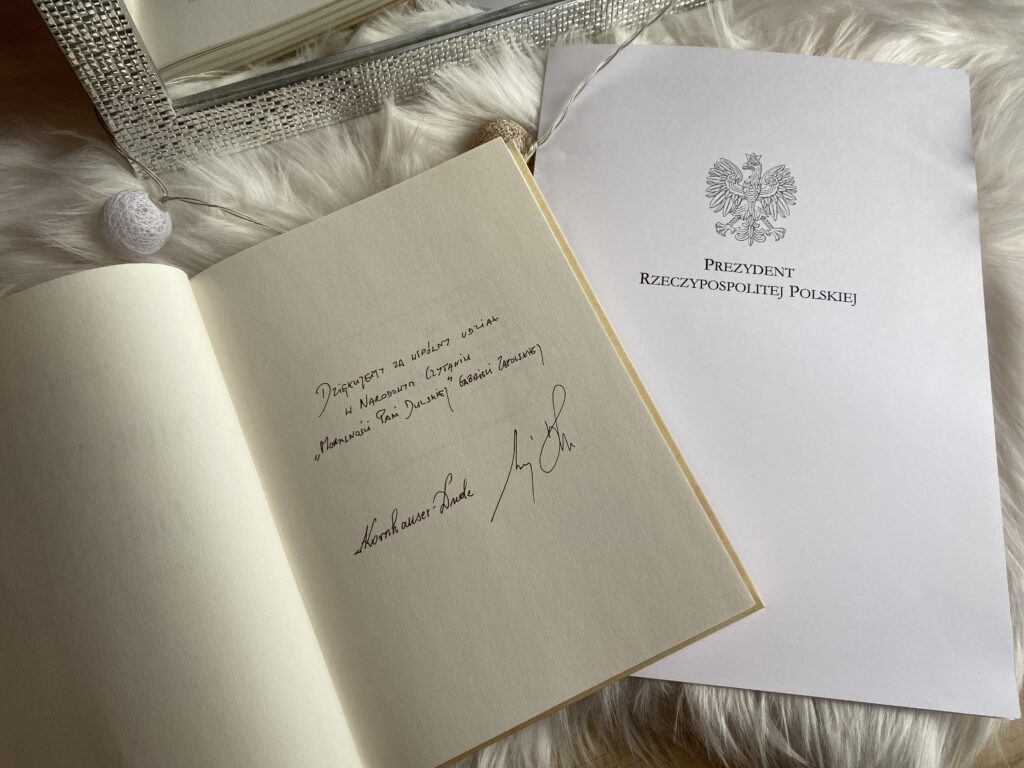 Dziękujemy za wspólny udział
w Narodowym Czytaniu
„Moralności Pani Dulskiej” Gabrieli Zapolskiej
AKornhauser-Duda
PREZYDENT
RZECZYPOSPOLITEJ POLSKIEJ